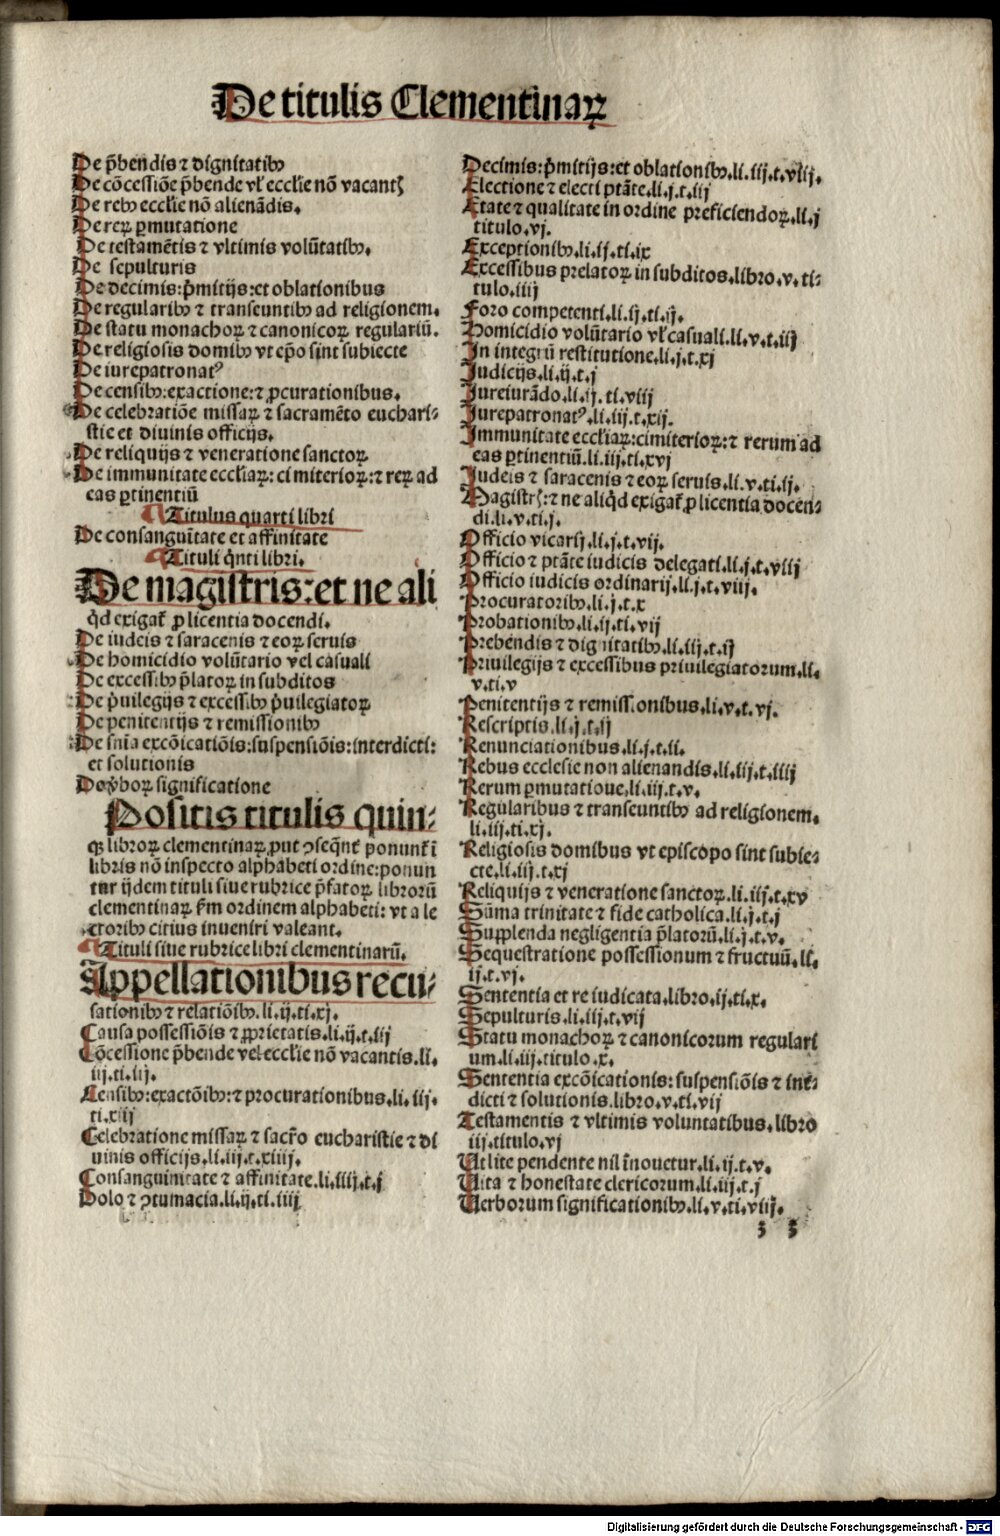 De titulis Clementinaꝝ
De p̄bendis ⁊ dignitatibꝰ
De cōcessiōe p̄bende vl̓ eccl̓ie nō vacantꝭ
De rebꝰ eccl̓ie nō alienādis.
De reꝝ ꝑmutatione
De testamētis ⁊ vltimis volūtatibꝰ.
De sepulturis
De decimis: p̄mitijs: et oblationibus
De regularibꝰ ⁊ transeuntibꝰ ad religionem.
De statu monachoꝝ ⁊ canonicoꝝ regulariū.
De religiosis domibꝰ vt ep̄o sint subiecte
De iurepatronatꝰ
De censibꝰ: exactione: ⁊ ꝓcurationibus.
De celebratiōe missaꝝ ⁊ sacramēto euchari⸗
stie et diuinis officijs.
De reliquijs ⁊ veneratione sanctoꝝ
De immunitate eccl̓iaꝝ: cimiterioꝝ: ⁊ reꝝ ad
eas ꝑtinentiū
¶ Titulus quarti libri
De consanguītate et affinitate
¶ Tituli q̄nti libri.
De magistris: et ne ali
q̄d exigat̄ ꝓ licentia docendi.
De iudeis ⁊ saracenis ⁊ eoꝝ seruis
De homicidio volūtario vel casuali
De excessibꝰ p̄latoꝝ in subditos
De p̄uilegijs ⁊ excessibꝰ p̄uilegiatoꝝ
De penitentijs ⁊ remissionibꝰ
De sn̄ia excōicatiōis: suspensiōis: interdicti:
et solutionis
De v̄boꝝ significatione
Positis titulis quin⸗
qꝫ libroꝝ clementinaꝝ, put ꝯseq̄nt̄ ponunt̄ ī
libris nō inspecto alphabeti ordine: ponun
tur ijdem tituli siue rubrice p̄fatoꝝ libroꝝū
clementinaꝝ ẜm ordinem alphabeti: vt a le
ctoribꝰ citius inueniri valeant.
¶ Tituli siue rubrice libri clementinarū.
Appellationibus recu⸗
sationibꝰ ⁊ relatiōibꝰ. li. ij. ti. xj.
Causa possessiōis ⁊ ꝓprietatis. li. ij. t. iij
Cōcessione p̄bende vel eccl̓ie nō vacantis. li.
iij. ti. iij.
Censibꝰ: exactōibꝰ: ⁊ procurationibus. li. iij.
ti. xiij
Celebratione missaꝝ ⁊ sacr̄o eucharistie ⁊ di
uinis officijs. li. iij. t. xiiij.
Consanguinitate ⁊ affinitate. li. iiij. t. j
Dolo ⁊ ꝯtumacia. li. ij. ti. iiij
Decimis: p̄mitijs: et oblationibꝰ. li. iij. t. viij.
Electione ⁊ electi ptāte. li. j. t. iij
Etate ⁊ qualitate in ordine preficiendoꝝ. li. j
titulo. vj.
Exceptionibꝰ. li. ij. ti. ix
Excessibus prelatoꝝ in subditos. libro. v. ti⸗
tulo. iiij
Foro competenti. li. ij. ti. ij.
Homicidio volūtario vl̓ casuali. li. v. t. iij
In integrū restitutione. li. j. t. xj
Judicijs. li. ij. t. j
Jureiurādo. li. ij. ti. viij
Jurepatronatꝰ. li. iij. t. xij.
Immunitate eccl̓iaꝝ: cimiterioꝝ: ⁊ rerum ad
eas ꝑtinentiū. li. iij. ti. xvj
Judeis ⁊ saracenis ⁊ eoꝝ seruis. li. v. ti. ij.
Magistrꝭ: ⁊ ne aliq̄d exigat̄ ꝓ licentia docen⸗
di. li. v. ti. j.
Officio vicarij. li. j. t. vij.
Officio ⁊ ptāte iudicis delegati. li. j. t. viij
Officio iudicis ordinarij. li. j. t. viij.
Procuratoribꝰ. li. j. t. x
Probationibꝰ. li. ij. ti. vij
Prebendis ⁊ dignitatibꝰ. li. iij. t. ij
Priuilegijs ⁊ excessibus priuilegiatorum. li.
v. ti. v
Penitentijs ⁊ remissionibus. li. v. t. vj.
Rescriptis. li. j. t. ij
Renunciationibus. li. j. t. ii.
Rebus ecclesie non alienandis. li. iij. t. iiij
Rerum ꝑmutatioue. li. iij. t. v.
Regularibus ⁊ transeuntibꝰ ad religionem.
li. iij. ti. xj.
Religiosis domibus vt episcopo sint subie⸗
cte. li. iij. t. xj
Reliquijs ⁊ veneratione sanctoꝝ. li. iij. t. xv
Sūma trinitate ⁊ fide catholica. li. j. t. j
Supplenda negligentia p̄latorū. li. j. t. v.
Sequestratione possessionum ⁊ fructuū. li.
ij. t. vj.
Sententia et re iudicata. libro. ij. ti. x.
Sepulturis. li. iij. t. vij
Statu monachoꝝ ⁊ canonicorum regulari
um. li. iij. titulo. x.
Sententia excōicationis: suspensiōis ⁊ int̄⸗
dicti ⁊ solutionis. libro. v. ti. vij
Testamentis ⁊ vltimis voluntatibus. libro
iij. titulo. vj
Ut lite pendente nil īnouetur. li. ij. t. v.
Uita ⁊ honestate clericorum. li. iij. t. j
Uerborum significationibꝰ. li. v. ti. viij.
3 3
Digitalisierung gefördert durch die Deutsche Forschungsgemeinschaft - DFG